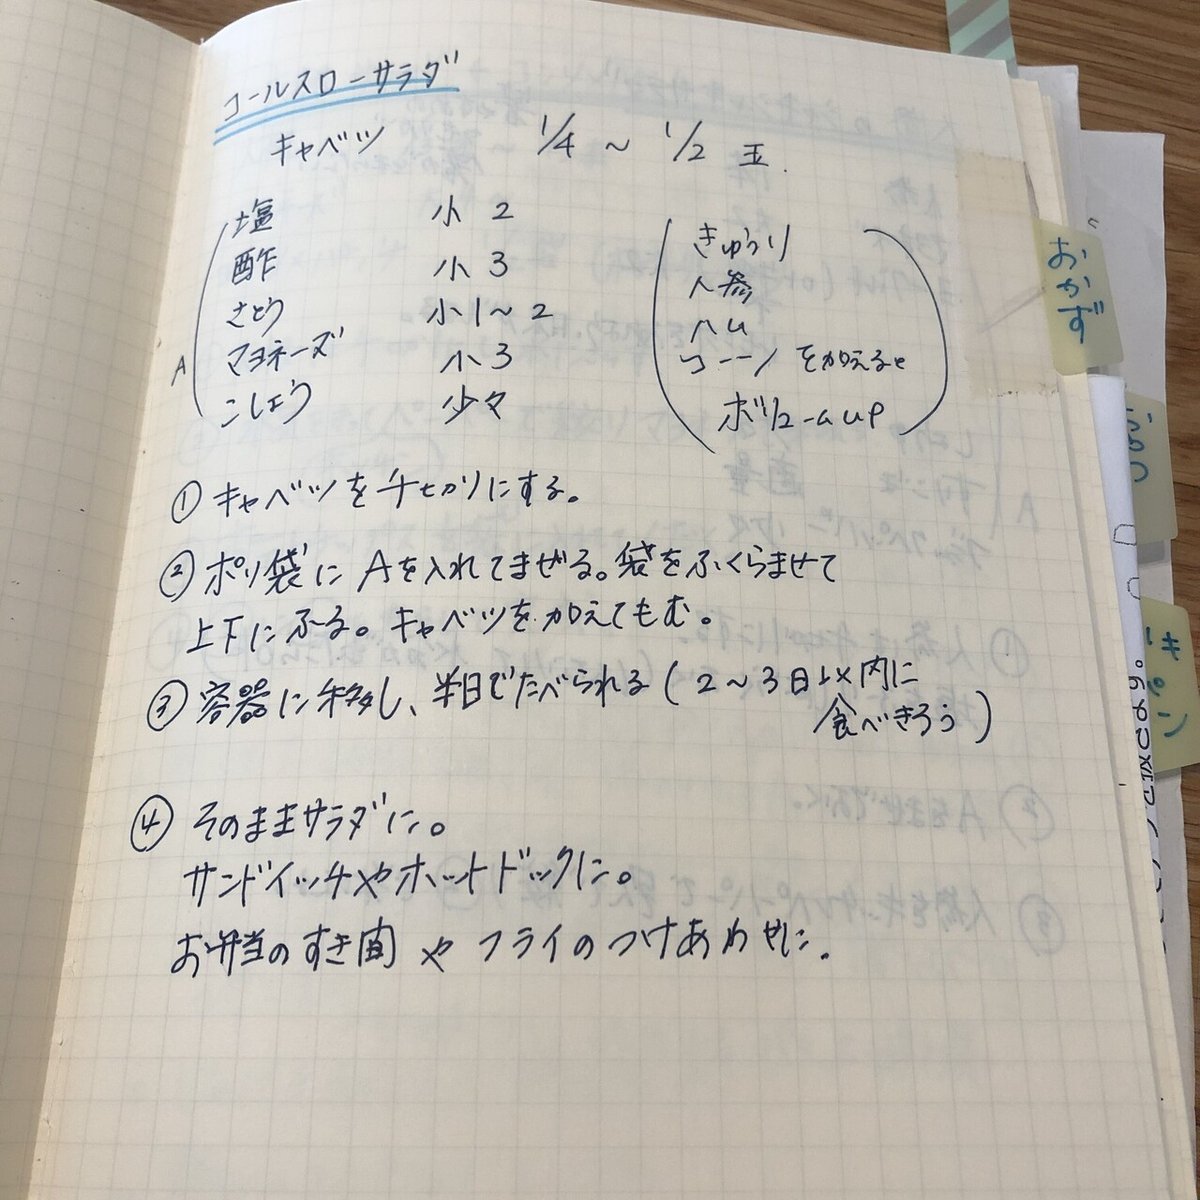 コールスローサラダ
キャベツ 1/4 ～ 1/2 玉.
A
塩 小 2
酢 小 3
さとう 小1～2
マヨネーズ 小 3
こしょう 少々
きゅうり
人参
ハム
コーン を加えると
ボリュームup
① キャベツを千切りにする。
② ポリ袋に Aを入れてまぜる。袋をふくらませて
上下にふる。キャベツを加えてもむ。
③ 容器に移し、半日でたべられる (2～3日以内に
食べきろう)
④ そのままサラダに。
サンドイッチやホットドックに。
お弁当のすき間 や フライのつけあわせに.
おかず